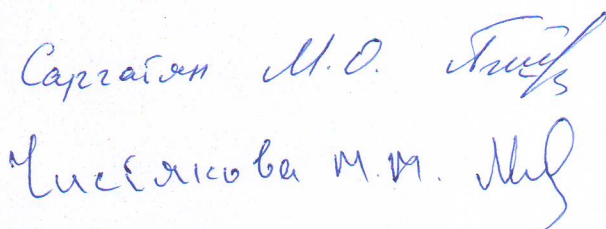 Саргатян М.О.
Чистякова М.М.